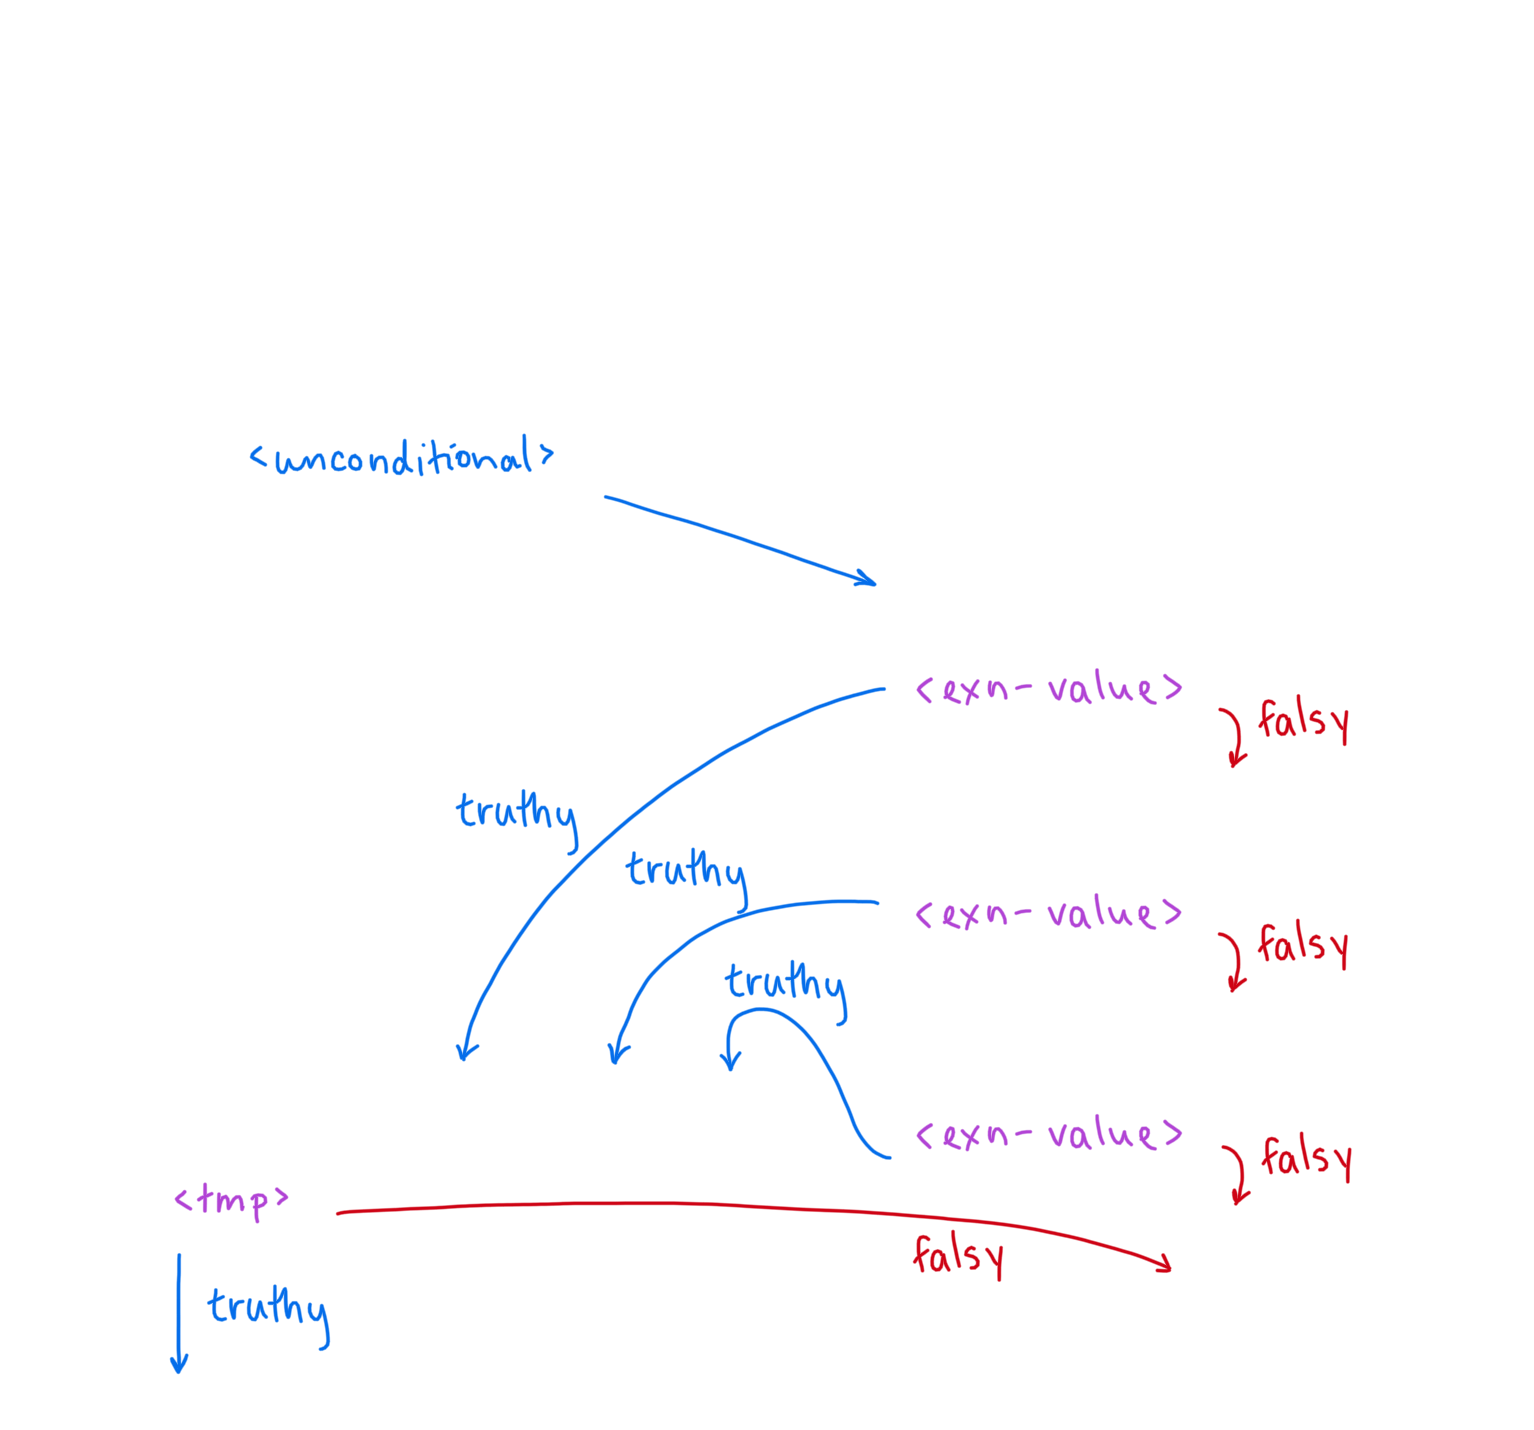 <unconditional>
<exn-value>
falsy
truthy
truthy
<exn-value>
falsy
truthy
<exn-value>
falsy
<tmp>
falsy
truthy